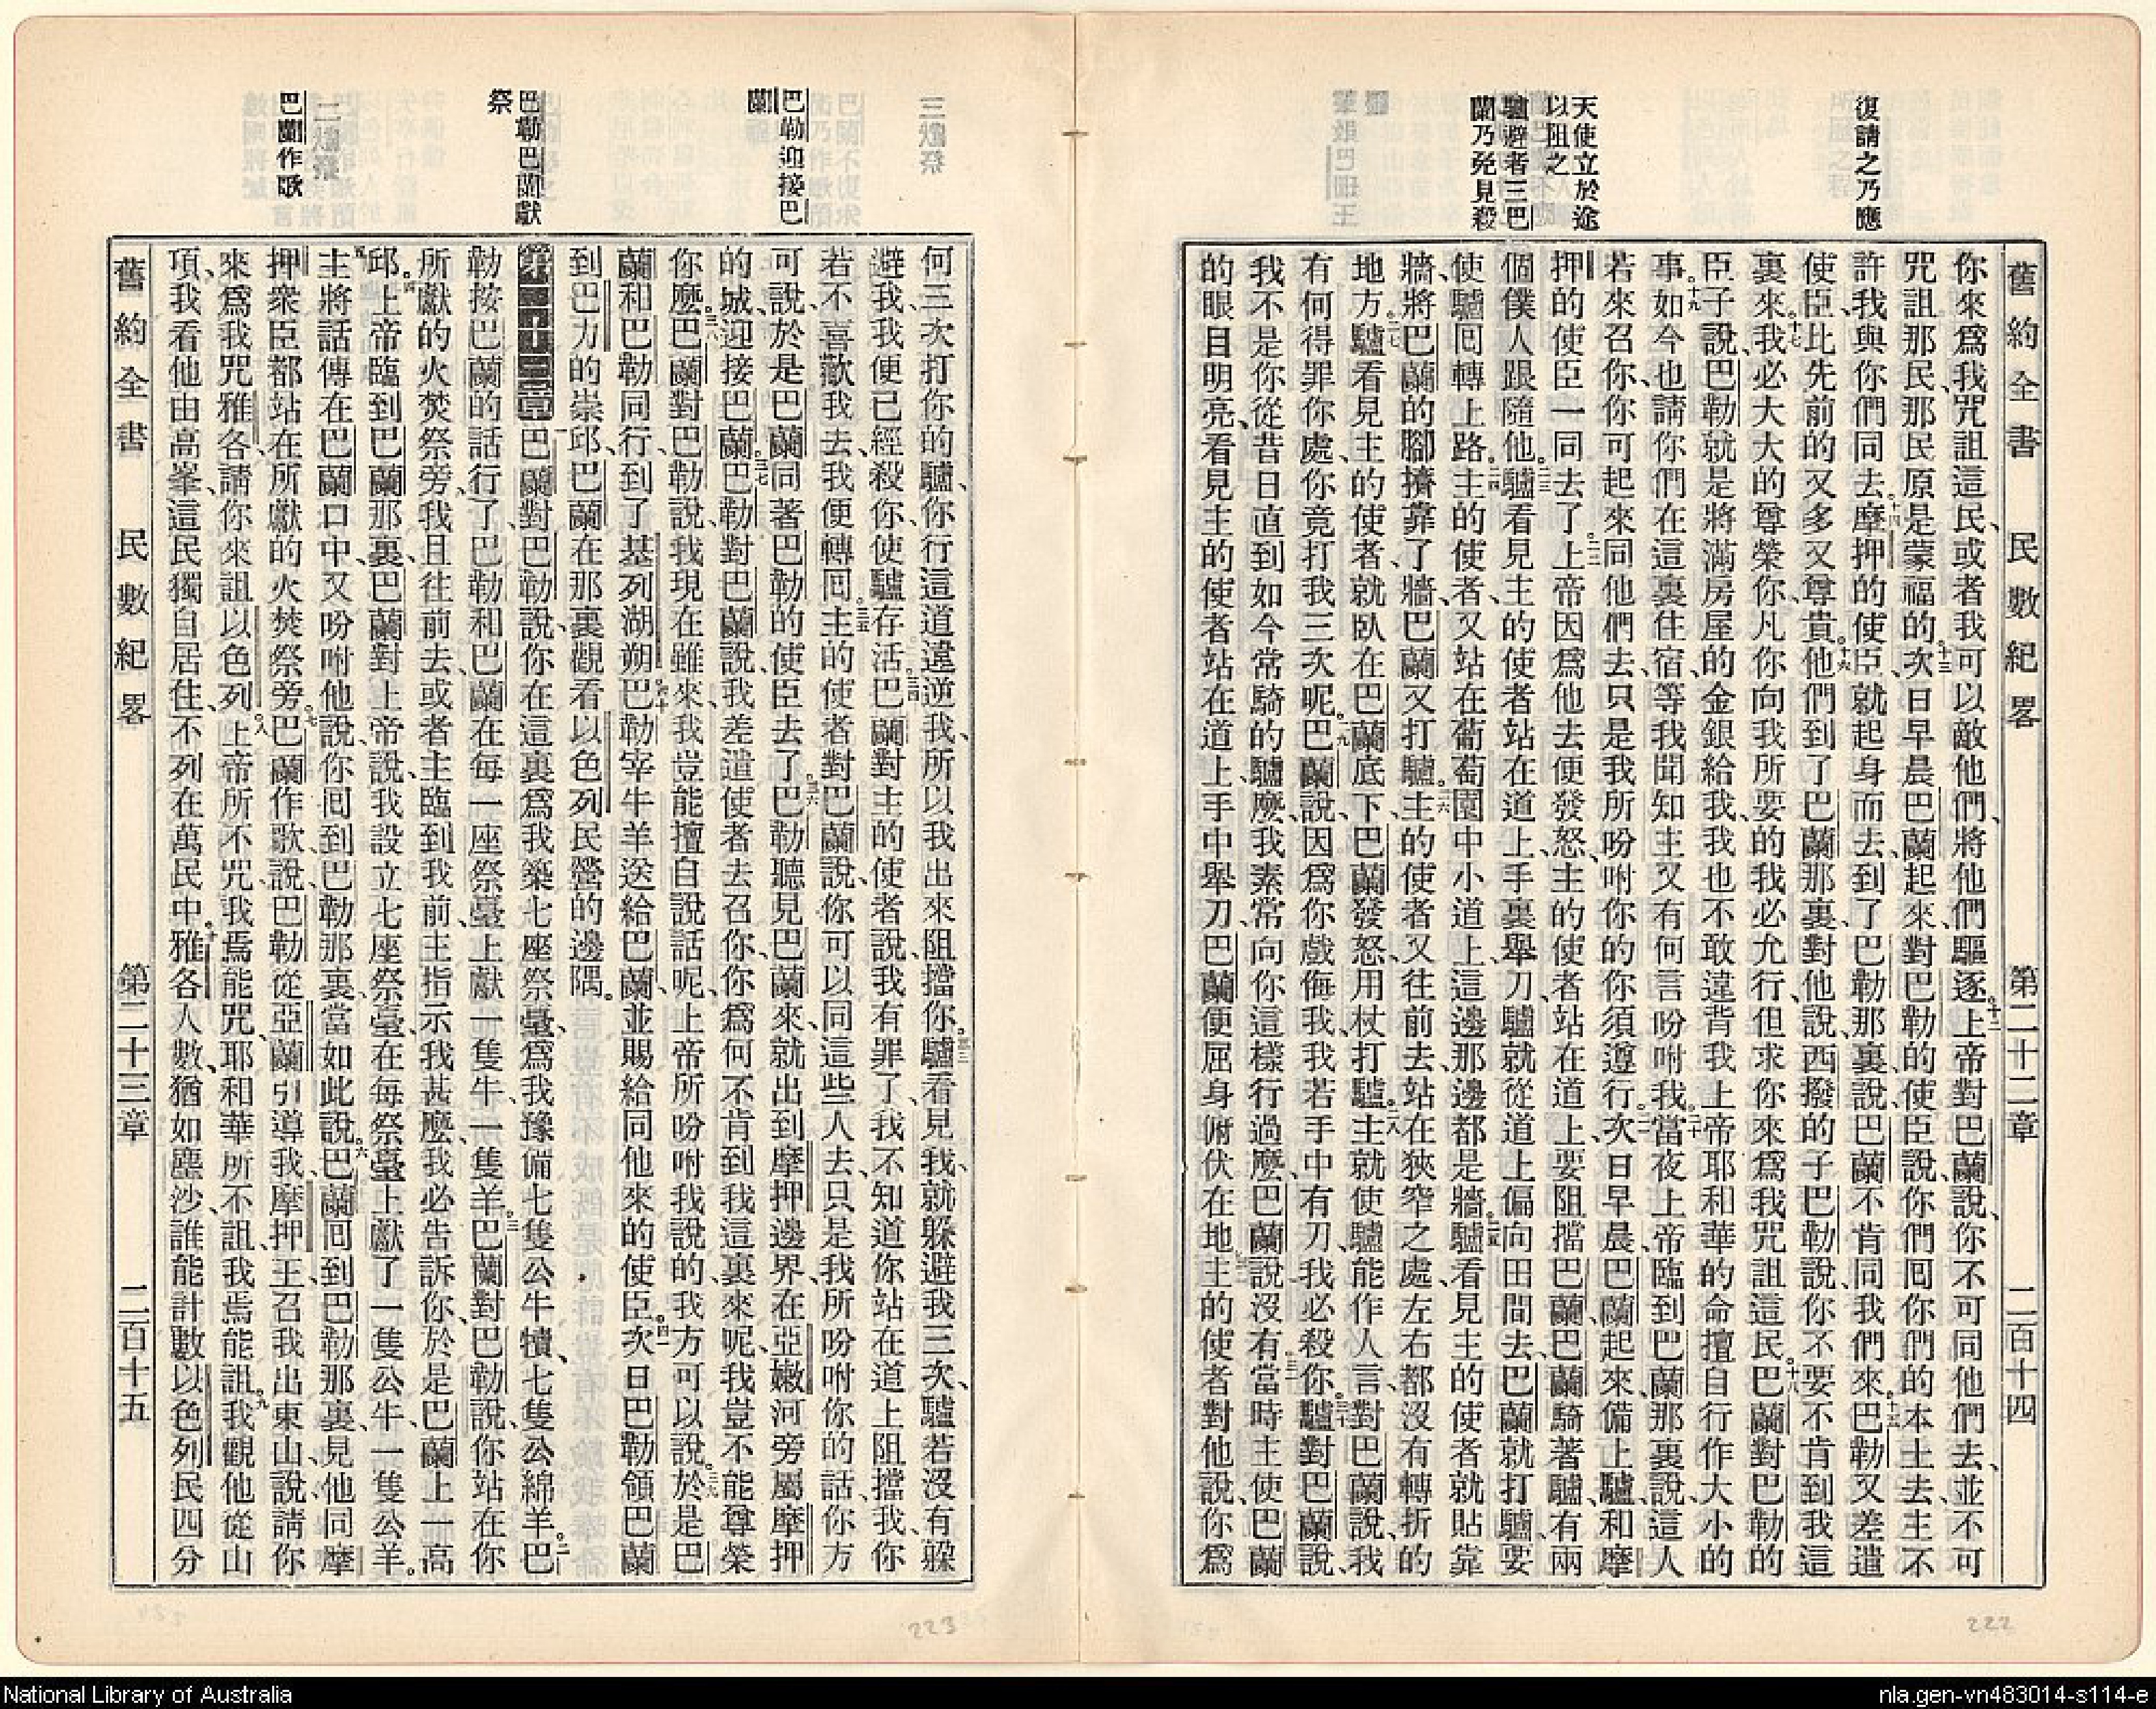 舊約全書 民數紀畧 第二十二章 二百十四
復請之乃應
天使立於途
以阻之
驢避者三巴
蘭乃免見殺
你來爲我咒詛這民、或者我可以敵他們、將他們驅逐。十二上帝對巴蘭說、你不可同他們去、並不可
咒詛那民、那民原是蒙福的。十三次日早晨巴蘭起來、對巴勒的使臣說、你們囘你們的本土去、主不
許我與你們同去。十四摩押的使臣就起身而去、到了巴勒那裏說、巴蘭不肯同我們來。十五巴勒又差遣
使臣、比先前的又多又尊貴。十六他們到了巴蘭那裏、對他說、西撥的子巴勒說、你不要不肯到我這
裏來。十七我必大大的尊榮你、凡你向我所要的我必允行、但求你來爲我咒詛這民。十八巴蘭對巴勒的
臣子說、巴勒就是將滿房屋的金銀給我、我也不敢違背我上帝耶和華的命、擅自行作大小的
事。十九如今也請你們在這裏住宿、等我聞知主又有何言吩咐我。二十當夜上帝臨到巴蘭那裏說、這人
若來召你、你可起來同他們去、只是我所吩咐你的、你須遵行。二一次日早晨、巴蘭起來、備上驢、和摩
押的使臣一同去了。二二上帝因爲他去便發怒、主的使者站在道上、要阻擋巴蘭、巴蘭騎著驢、有兩
個僕人跟隨他。二三驢看見主的使者站在道上、手裏舉刀、驢就從道上偏向田間去、巴蘭就打驢、要
使驢囘轉上路。二四主的使者、又站在葡萄園中小道上、這邊那邊都是牆。二五驢看見主的使者、就貼靠
牆、將巴蘭的腳擠靠了牆、巴蘭又打驢。二六主的使者又往前去、站在狹窄之處、左右都沒有轉折的
地方。二七驢看見主的使者、就臥在巴蘭底下、巴蘭發怒、用杖打驢。二八主就使驢能作人言、對巴蘭說、我
有何得罪你處、你竟打我三次呢。二九巴蘭說、因爲你戲侮我、我若手中有刀、我必殺你。三十驢對巴蘭說、
我不是你從昔日直到如今常騎的驢麼、我素常向你這樣行過麼、巴蘭說沒有。三一當時主使巴蘭
的眼目明亮、看見主的使者站在道上、手中舉刀、巴蘭便屈身俯伏在地。三二主的使者對他說、你爲
巴勒迎接巴
蘭
巴勒巴蘭獻
祭
巴蘭作歌
何三次打你的驢、你行這道違逆我、所以我出來阻擋你。三三驢看見我、就躲避我三次、驢若沒有躲
避我、我便已經殺你、使驢存活。三四巴蘭對主的使者說、我有罪了、我不知道你站在道上阻擋我、你
若不喜歡我去、我便轉囘。三五主的使者對巴蘭說、你可以同這些人去、只是我所吩咐你的話、你方
可說、於是巴蘭同著巴勒的使臣去了。三六巴勒聽見巴蘭來、就出到摩押邊界、在亞嫩河旁屬摩押
的城、迎接巴蘭。三七巴勒對巴蘭說、我差遣使者去召你、你爲何不肯到我這裏來呢、我豈不能尊榮
你麼。三八巴蘭對巴勒說、我現在雖來、我豈能擅自說話呢、上帝所吩咐我說的、我方可以說。三九於是巴
蘭和巴勒同行、到了基列湖朔。四十巴勒宰牛羊送給巴蘭、並賜給同他來的使臣。四一次日巴勒領巴蘭
到巴力的崇邱、巴蘭在那裏觀看以色列民營的邊隅。
第二十三章 一巴蘭對巴勒說、你在這裏爲我築七座祭臺、爲我豫備七隻公牛犢、七隻公綿羊。二巴
勒按巴蘭的話行了、巴勒和巴蘭在每一座祭臺上獻一隻牛、一隻羊。三巴蘭對巴勒說、你站在你
所獻的火焚祭旁、我且往前去、或者主臨到我前、主指示我甚麼、我必告訴你、於是巴蘭上一高
邱。四上帝臨到巴蘭那裏、巴蘭對上帝說、我設立七座祭臺、在每祭臺上獻了一隻公牛、一隻公羊。
五主將話傳在巴蘭口中、又吩咐他說、你囘到巴勒那裏、當如此說。六巴蘭囘到巴勒那裏、見他同摩
押衆臣都站在所獻的火焚祭旁。七巴蘭作歌說、巴勒從亞蘭引導我、摩押王召我出東山、說、請你
來爲我咒雅各、請你來詛以色列。八上帝所不咒、我焉能咒、耶和華所不詛、我焉能詛。九我觀他從山
項、我看他由高峯、這民獨自居住、不列在萬民中。十雅各人數、猶如塵沙、誰能計數、以色列民四分
舊約全書 民數紀畧 第二十三章 二百十五
222
223
National Library of Australia
nla.gen-vn483014-s114-e